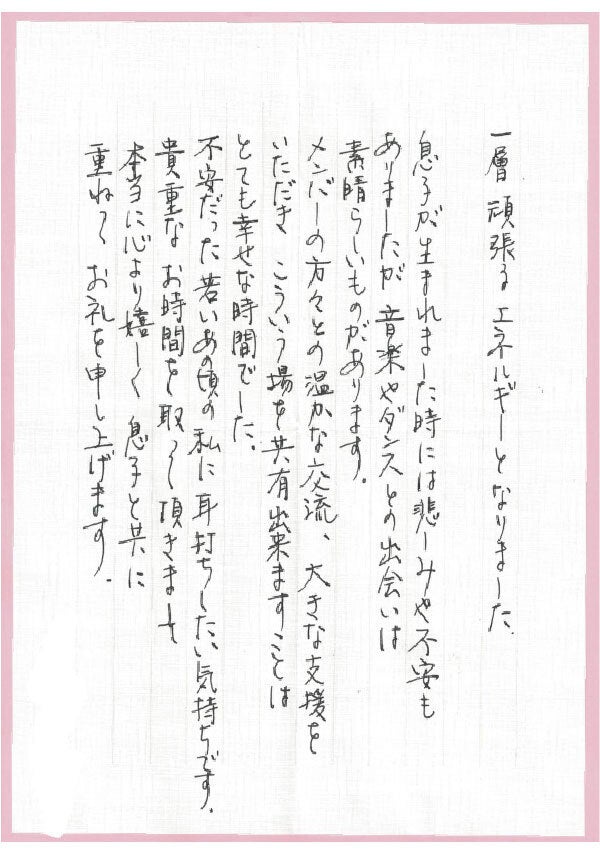 一層 頑張る エネルギーとなりました。
息子が生まれました時には悲しみや不安も
ありましたが 音楽やダンスとの出会いは
素晴らしいものがあります。
メンバーの方々との温かな交流、大きな支援を
いただき こういう場を共有出来ますことは
とても幸せな時間でした。
不安だった若いあの頃の私に耳打ちしたい気持ちです。
貴重な お時間を取って頂きまして
本当に心より嬉しく 息子と共に
重ねて お礼を申し上げます。